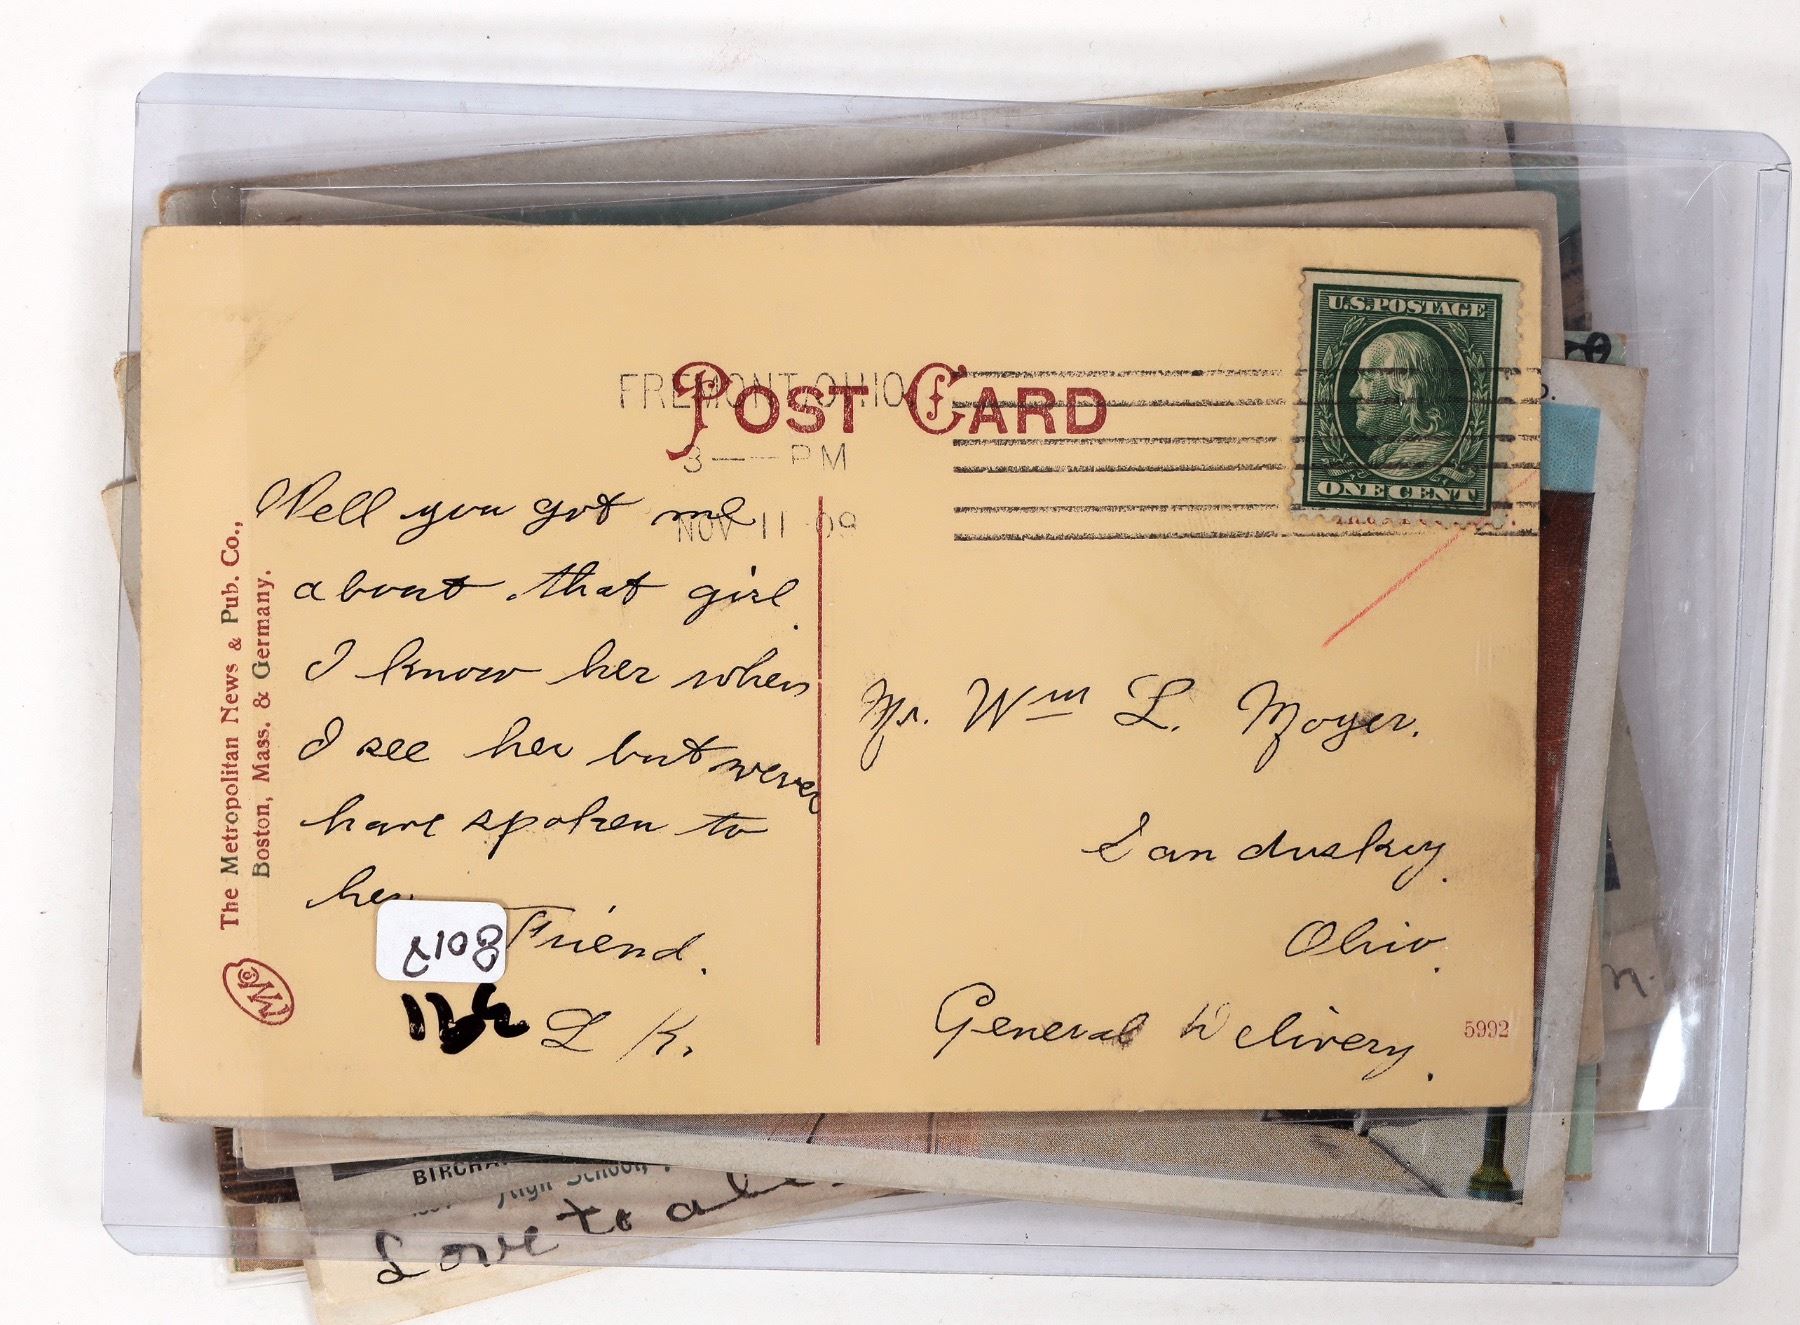 U.S. POSTAGE
ONE CENT
FREMONT, OHIO.
3 — PM
NOV 11 09
POST CARD
The Metropolitan News & Pub. Co.,
Boston, Mass. & Germany.
Well you got me
about that girl.
I know her when
I see her but never
have spoken to
her
Friend.
L K.
Mr. Wm L. Moyer.
Sandusky.
Ohio.
General Delivery.
5992
High School,
Love to